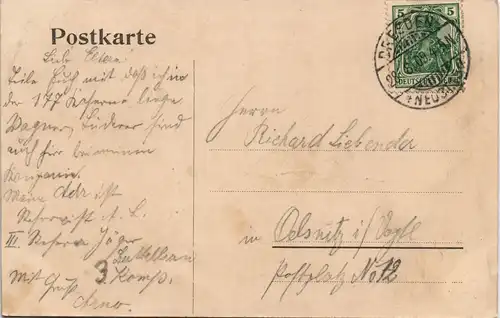 Postkarte
Liebe Eltern!
Teile Euch mit daß ich in
der 177 Kaserne liege
Wagner, Luderer sind
auch hier bei meiner
Kompanie.
Meine Adr ist
Reservist A. L.
III. Reserve Jäger
Battellion
3. Komp.
Mit Gruß
Arno.
5
DRESDEN
NEUST.
Herrn
Richard Liebender
in Oelsnitz i/Vogtl
Postplatz No 12